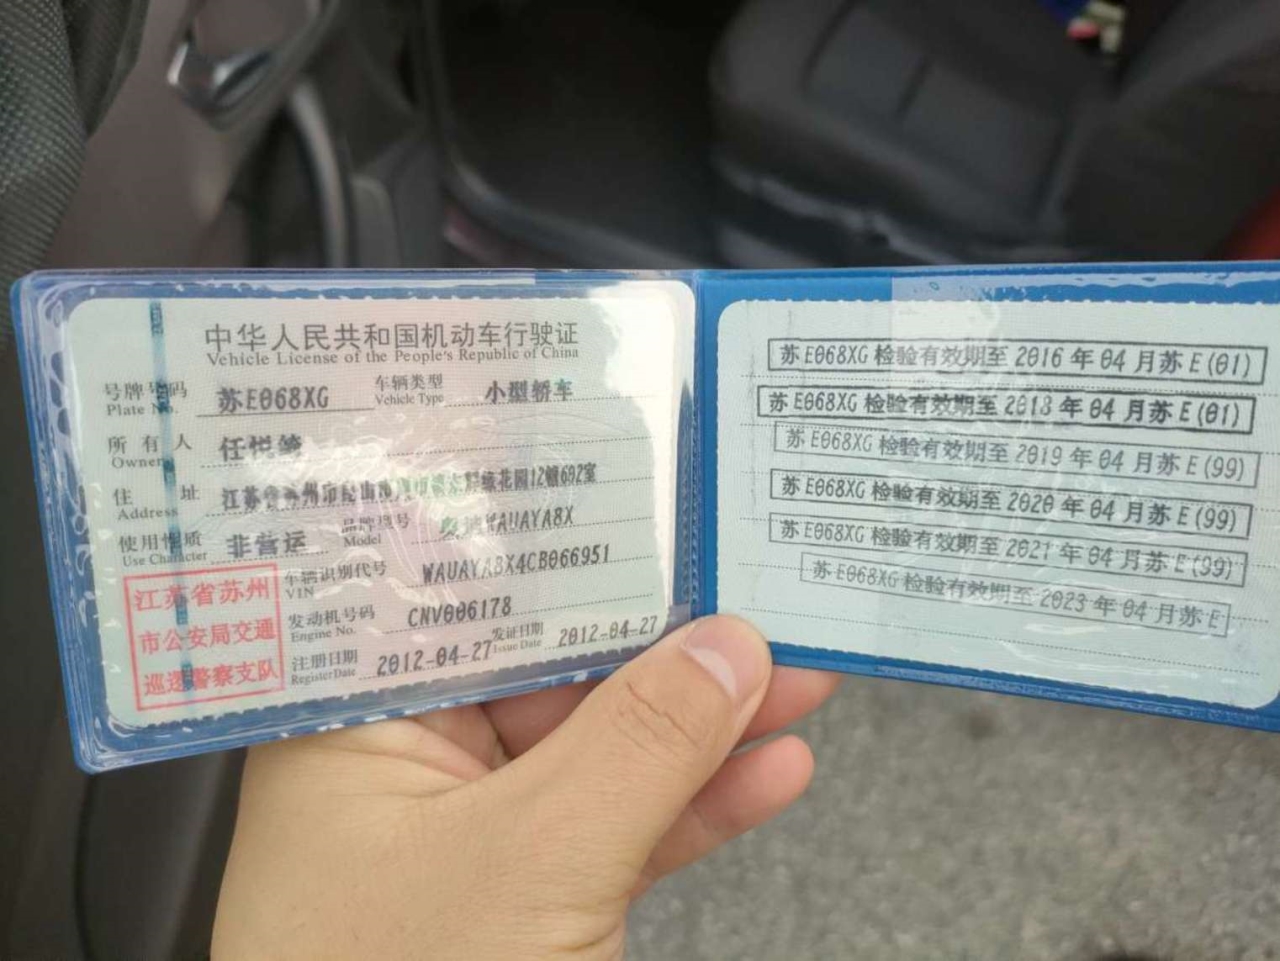 中华人民共和国机动车行驶证
Vehicle License of the People's Republic of China
号牌号码 苏E068XG 车辆类型 小型轿车
Plate No. Vehicle Type
所有人 任悦
Owner
住址 江苏省苏州市昆山市 花园12幢602室
Address
使用性质 非营运 品牌型号 奥迪WAUAYA8X
Use Character Model
车辆识别代号 WAUAYA8X4CB066951
VIN
发动机号码 CNV006178
Engine No.
注册日期 2012-04-27 发证日期 2012-04-27
Register Date Issue Date
江苏省苏州
市公安局交通
巡逻警察支队
苏E068XG 检验有效期至 2016 年 04 月苏 E (01)
苏E068XG 检验有效期至 2018 年 04 月苏 E (01)
苏E068XG 检验有效期至 2019 年 04 月苏 E (99)
苏E068XG 检验有效期至 2020 年 04 月苏 E (99)
苏E068XG 检验有效期至 2021 年 04 月苏 E (99)
苏E068XG 检验有效期至 2023 年 04 月苏 E